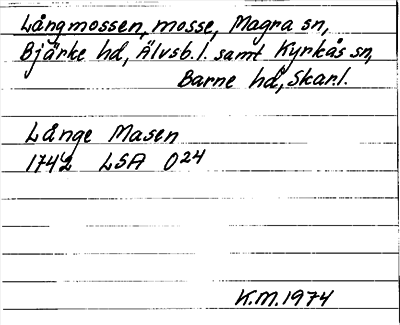 Långmossen, mosse, Magra sn,
Bjärke hd, Älvsb.l. samt Kyrkås sn,
Barne hd, Skar.l.
Långe Masen
1742 LSA O24
K.M.1974